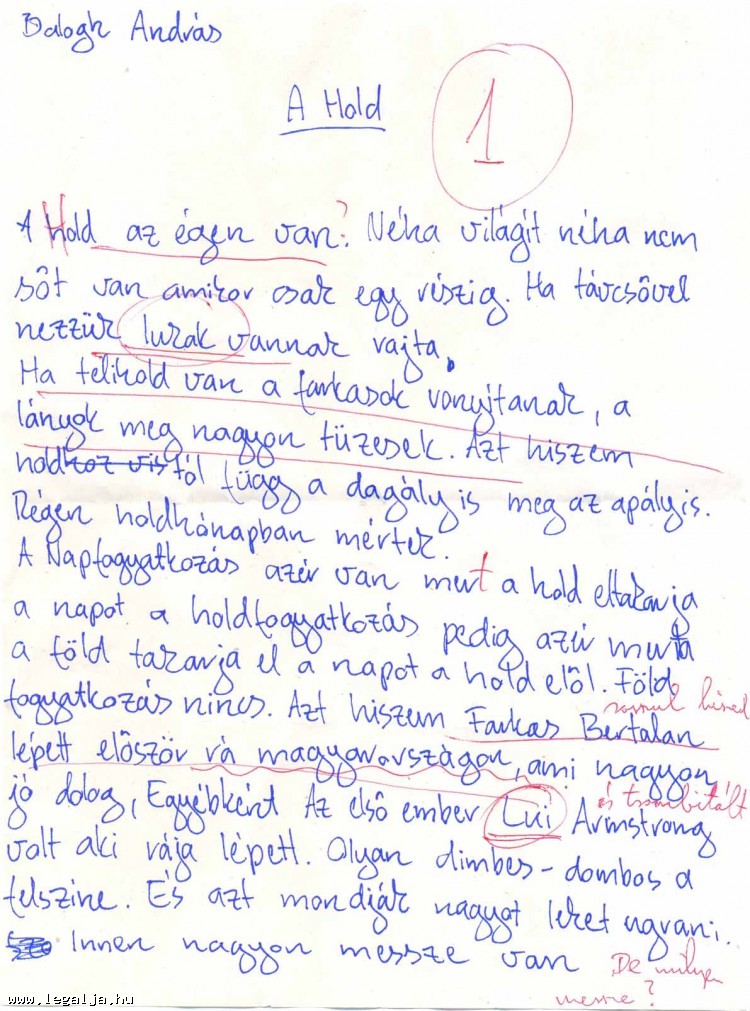 Balogh András
A Hold
1
A Hold az égen van? Néha világít néha nem
sőt van amikor csak egy részig. Ha távcsővel
nezzük lukak vannak rajta.
Ha telihold van a farkasok vonyítanak, a
lányok meg nagyon tüzesek. Azt hiszem
holdhoz vis tól függ a dagály is meg az apály is.
Régen holdhónapban mértek.
A Napfogyatkozás azér van mert a hold eltakarja
a napot a holdfogyatkozás pedig azér mert a
a föld takarja el a napot a hold elől. Föld
fogyatkozás nincs. Azt hiszem Farkas Bertalan
rosszul hiszed
lépett először rá magyarországon, ami nagyon
jó dolog, Egyébként Az első ember Lui Armstrong
és trombitált
volt aki rája lépett. Olyan dimbes-dombos a
felszine. És azt mondják nagyot lehet ugrani.
Innen nagyon messze van
De milyen
messze?
www.legalja.hu